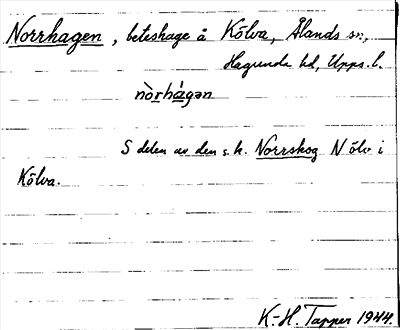 Norrhagen, beteshage å Kölva, Ålands sn,
Hagunda hd, Upps. l.
nòrhágən
S delen av den s.k. Norrskog N ölv i
Kölva.
K.-H. Tapper 1944.